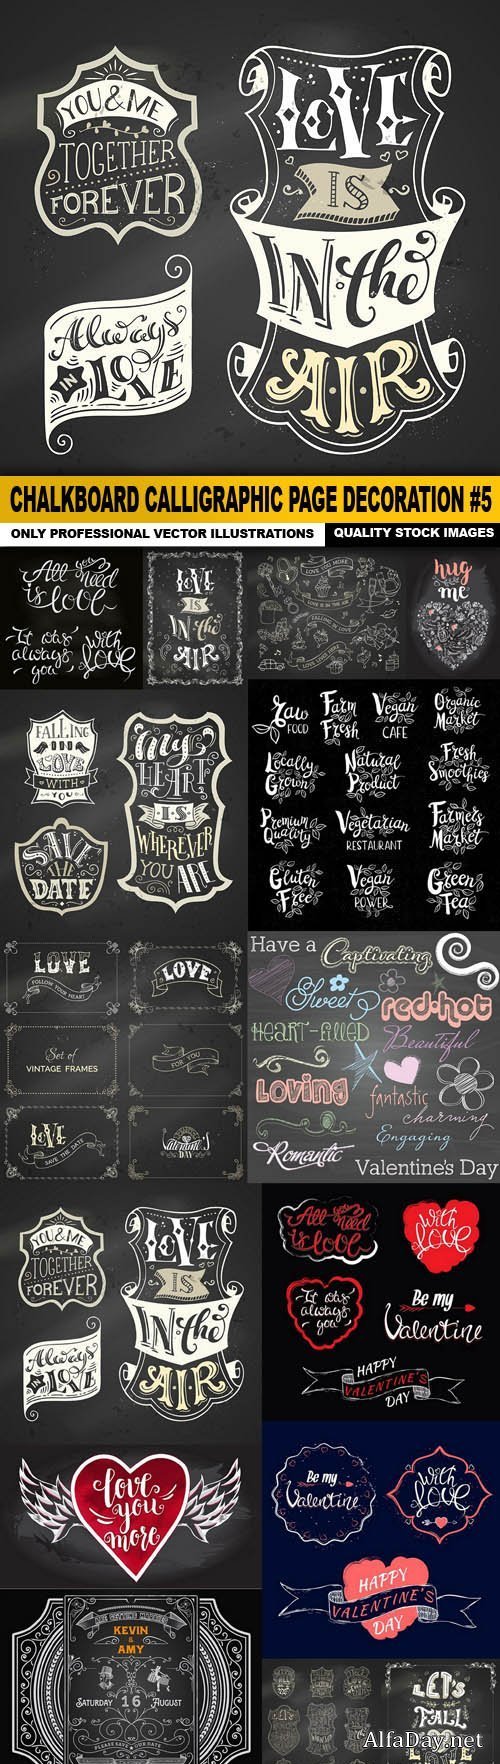 YOU & ME
TOGETHER
FOREVER
LOVE
IS
IN the
AIR
Always
IN LOVE
CHALKBOARD CALLIGRAPHIC PAGE DECORATION #5
ONLY PROFESSIONAL VECTOR ILLUSTRATIONS
QUALITY STOCK IMAGES
All you
need
is love
It was
always
you
with
love
LOVE
IS
IN the
AIR
LOVE YOU MORE
LOVE IS IN THE AIR
FALLING IN LOVE
hug
me
FALLING
IN
LOVE
WITH
YOU
SAVE
THE
DATE
My
HEART
IS
WHEREVER
YOU ARE
Raw
FOOD
Farm
Fresh
Vegan
CAFE
Organic
Market
Locally
Grown
Natural
Product
Fresh
Smoothies
Premium
Quality
Vegetarian
RESTAURANT
Farmers
Market
Gluten
Free
Vegan
POWER
Green
Tea
LOVE
FOLLOW YOUR HEART
LOVE
Set of
VINTAGE FRAMES
FOR YOU
LOVE
SAVE THE DATE
Valentine's
DAY
Have a
Captivating
Sweet
red-hot
HEART-filled
Beautiful
Loving
fantastic
charming
Engaging
Romantic
Valentine's Day
YOU & ME
TOGETHER
FOREVER
LOVE
IS
IN the
AIR
Always
IN LOVE
All you
need
is love
with
love
It was
always
you
Be my
Valentine
HAPPY
VALENTINE'S
DAY
love
you
more
Be my
Valentine
with
love
HAPPY
VALENTINE'S
DAY
ARE GETTING MARRIED
KEVIN
&
AMY
SATURDAY 16 AUGUST
PLEASE SAVE OUR DATE
LET'S
FALL
AlfaDay.net